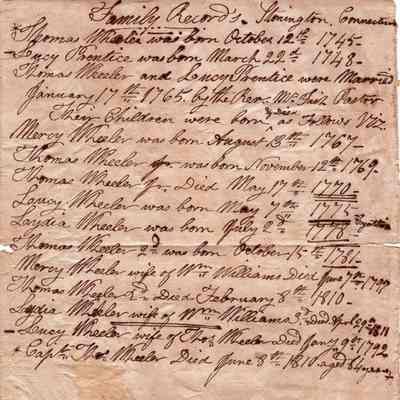 Family Record's. Stonington, Connecticut
Thomas Wheeler was born October 12th 1745
Lucy Prentice was born March 22d 1748
Thomas Wheeler and Lucy Prentice were Married
January 17th 1765. by the Rev. Mr. Pastor
Their Children were born & Died as Follows Viz.
Mercy Wheeler was born August 8th 1767
Thomas Wheeler Jr was born November 12th 1769
Thomas Wheeler Jr. Died May 17th 1770
Lucy Wheeler was born May 7th 1771
Lydia Wheeler was born July 2d 1778
Thomas Wheeler 2d was born October 15th 1781
Mercy Wheeler wife of Wm Williams Died June 7th 1797
Thomas Wheeler 2d Died February 8th 1810
Lydia Wheeler wife of Wm Williams 3d Died April 29th 1811
Lucy Wheeler wife of Thos Wheeler Died Jany 9th 1792
Captn Thos Wheeler Died June 8th 1810 aged 64 years